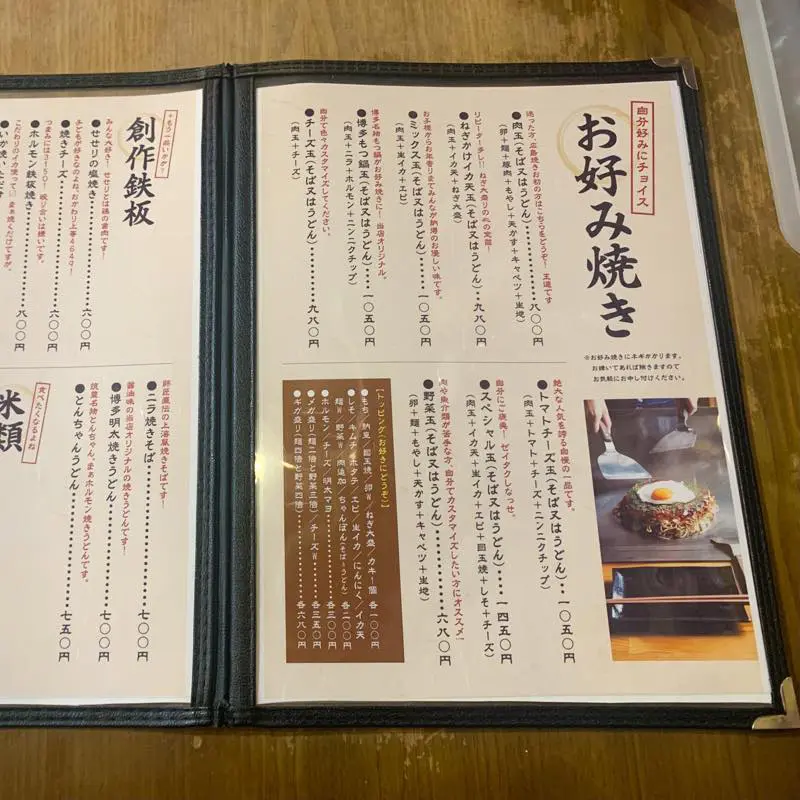 自分好みにチョイス
お好み焼き
※お好み焼きにネギがかかります。
お嫌いであれば除きますので
お気軽にお申し付けください。
迷った方、広島焼きお初の方はこちらをどうぞ！王道です
●肉玉(そば又はうどん)………八〇〇円
(卵＋麺＋豚肉＋もやし＋天かす＋キャベツ＋生地)
リピーター多し！！ねぎ大盛りの定番！
●ねぎかけイカ天玉(そば又はうどん)‥九八〇円
(肉玉＋イカ天＋ねぎ大盛)
お子様からお年寄りまでみんなが納得のお優しい味です。
●ミックス玉(そば又はうどん)………一〇五〇円
(肉玉＋生イカ＋エビ)
博多名物もつ鍋がお好み焼きに！当店オリジナル。
●博多もつ鍋玉(そば又はうどん)…一〇五〇円
(肉玉＋ニラ＋ホルモン＋ニンニクチップ)
自分で色々カスタマイズしてください。
●チーズ玉(そば又はうどん)………九八〇円
(肉玉＋チーズ)
絶大な人気を誇る自慢の一品です。
●トマトチーズ玉(そば又はうどん)‥一〇五〇円
(肉玉＋トマト＋チーズ＋ニンニクチップ)
自分にご褒美！ゼイタクしなっせ。
●スペシャル玉(そば又はうどん)…一四五〇円
(肉玉＋イカ天＋生イカ＋エビ＋目玉焼＋しそ＋チーズ)
肉や魚介類が苦手な方、自分でカスタマイズしたい方にオススメ！
●野菜玉(そば又はうどん)………六八〇円
(卵＋麺＋もやし＋天かす＋キャベツ＋生地)
【トッピング(お好きにどうぞ)】
●もち／納豆／目玉焼／卵W／ねぎ大盛／カキ一個 各一〇〇円
●しそ／キムチ／ホタテ／エビ／生イカ／にんにく／イカ天
麺W／野菜W／肉追加／ちゃんぽん(そば＋うどん)………各二〇〇円
●ホルモン／チーズ／明太マヨ………各三〇〇円
●メガ盛り(麺二倍と野菜三倍)／チーズW………各三五〇円
●ギガ盛り(麺四倍と野菜四倍)………各六八〇円
＋もう一品いかが？
創作鉄板
みんな大好き！せせりとは鶏の首肉です！
●せせりの塩焼き………六〇〇円
子どもが好きなのよね、おかわり上等4649！
●焼きチーズ………六〇〇円
つまみには3150！呪り合いは続いてます。
●ホルモン鉄板焼き………八〇〇円
こだわりのイカ使って、まぁ焼くだけですが。
食べたくなるよね
米類
師匠直伝の上海風焼きそばです！
●ニラ焼きそば………七〇〇円
醤油味の当店オリジナルの焼きうどんです！
●博多明太焼きうどん………七〇〇円
筑豊名物とんちゃん。まぁホルモン焼きうどんです。
●とんちゃんうどん………七五〇円